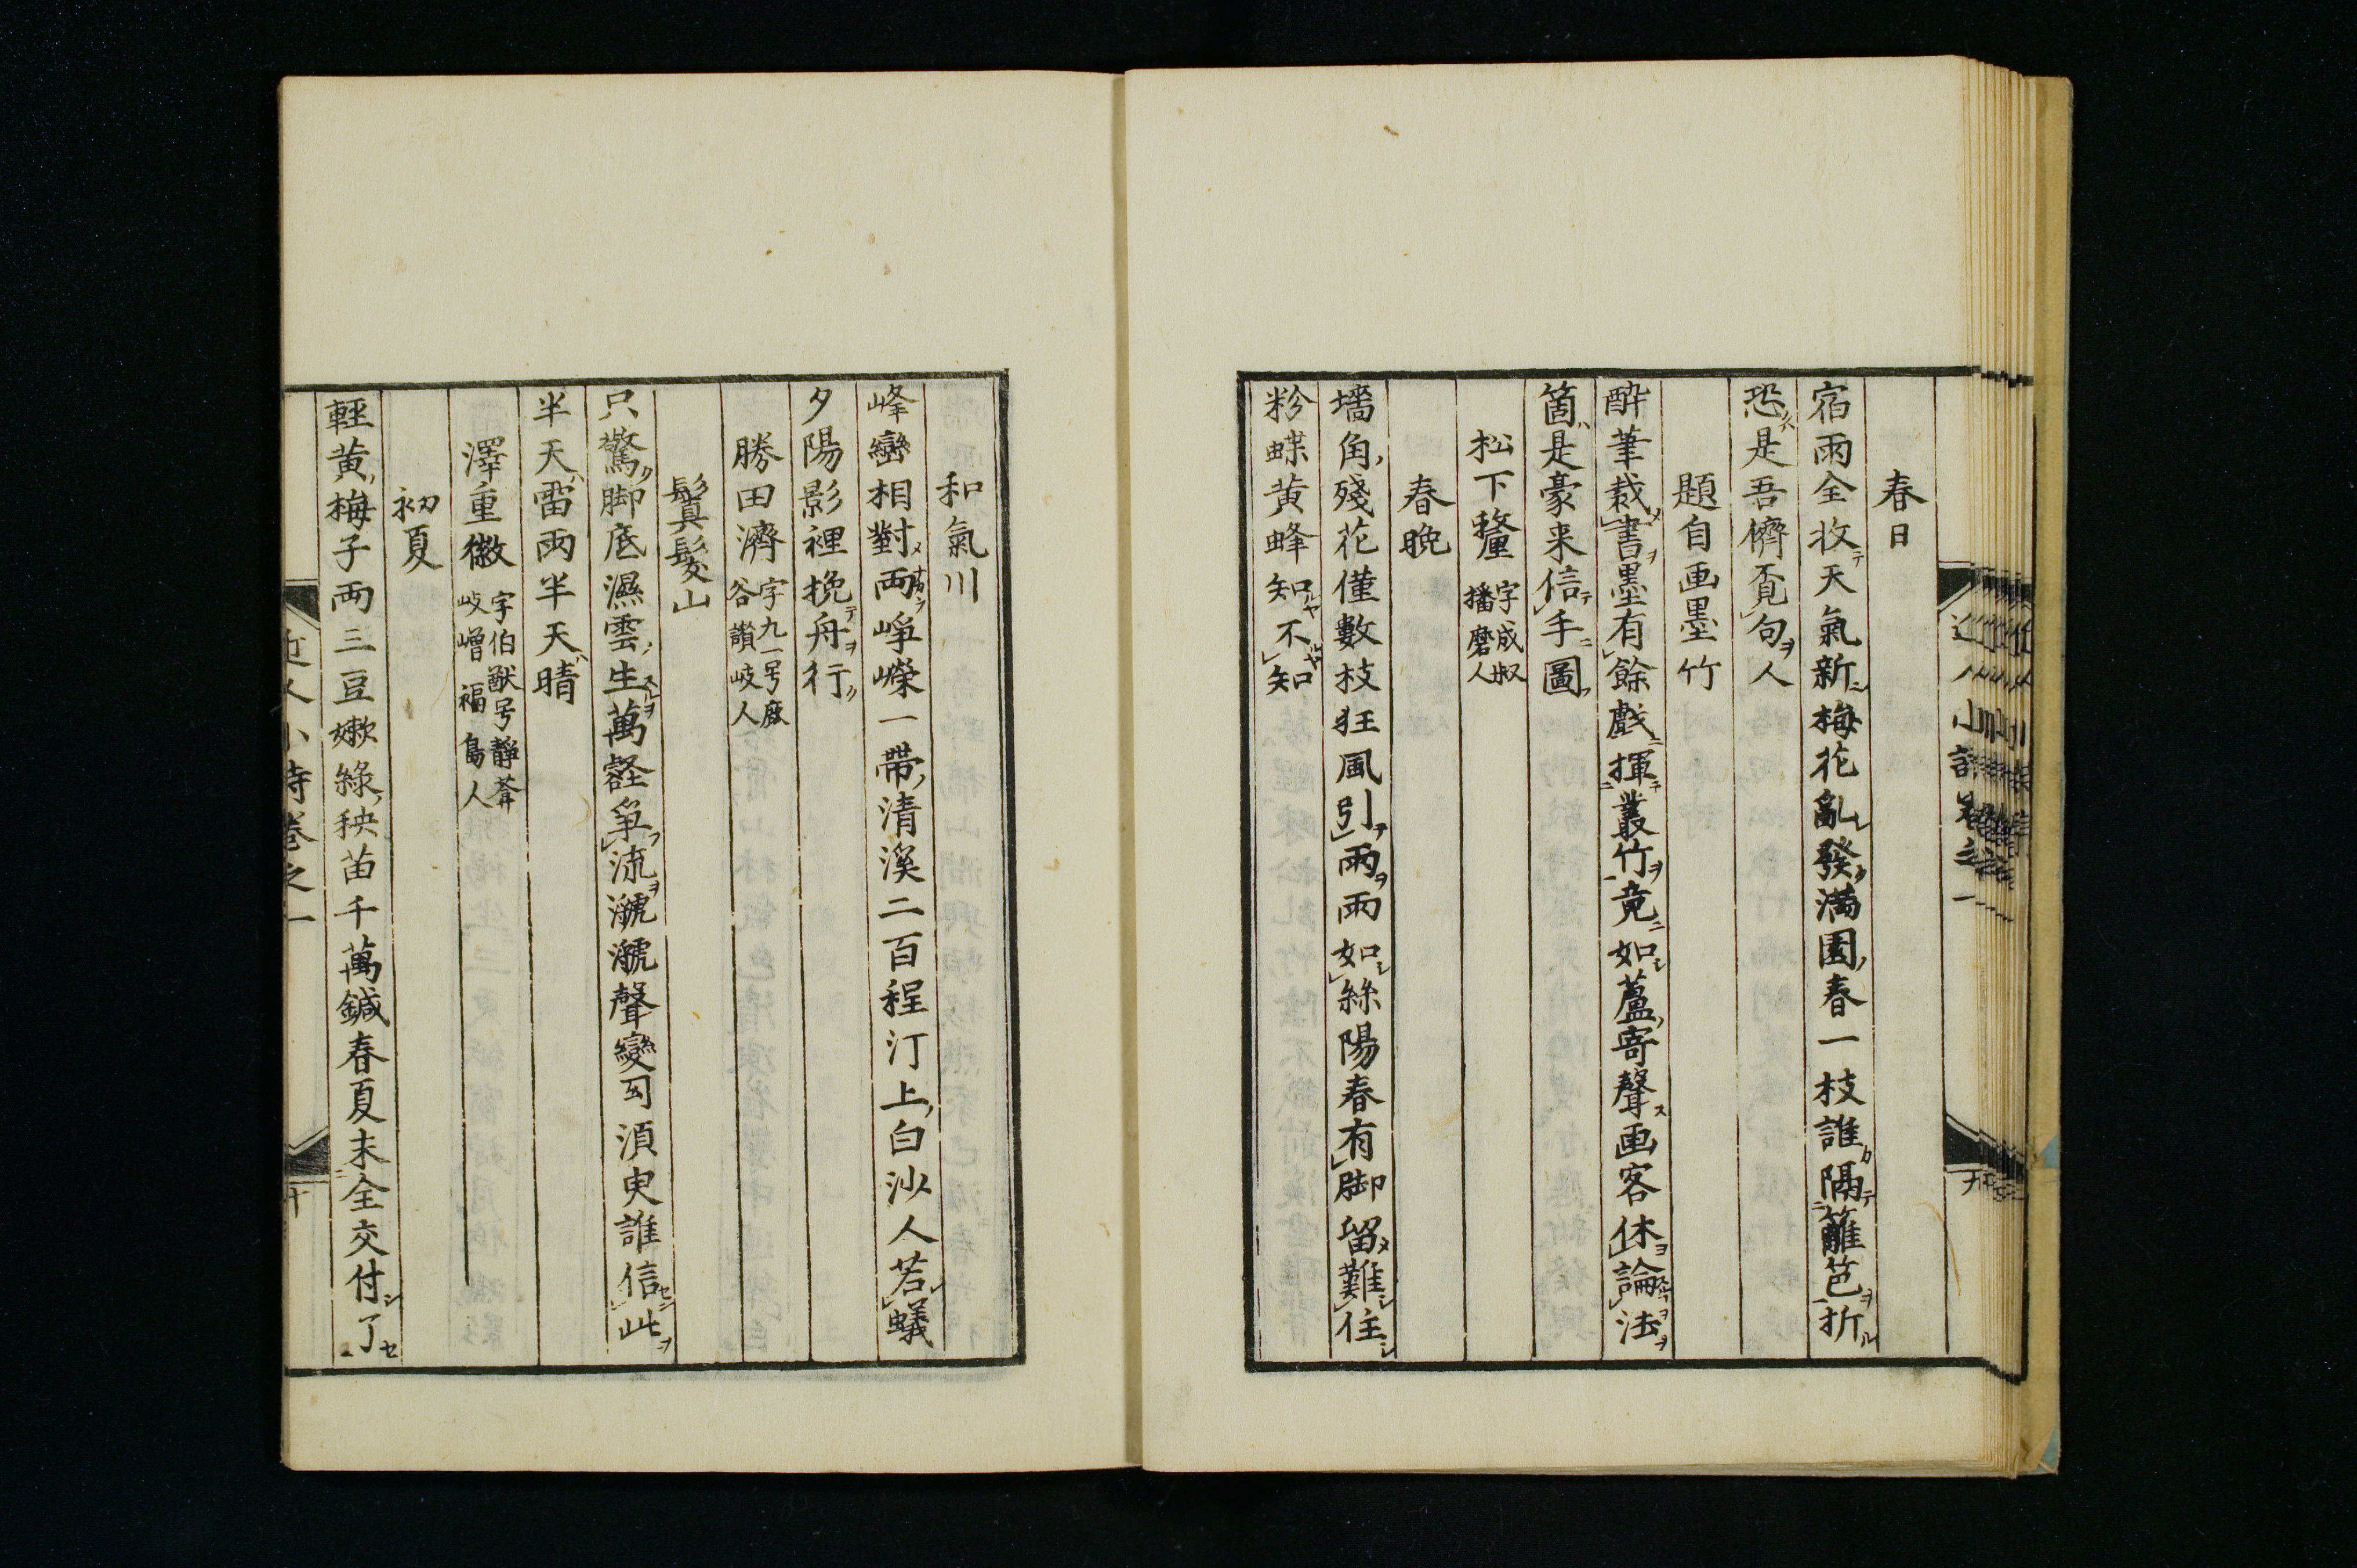 春日
宿雨全收天氣新梅花亂發滿園春一枝誰隔籬笆折
恐是吾儕覓句人
題自画墨竹
酔筆裁書墨有餘戲揮叢竹竟如蘆寄聲画客休論法
箇是豪来信手圖
松下釐 字成叔 播磨人
春晚
墻角殘花僅數枝狂風引雨雨如絲陽春有脚留難住
粉蝶黄蜂知不知
和氣川
峰巒相對両崢嶸一帶清溪二百程汀上白沙人若蟻
夕陽影裡挽舟行
勝田濟 字九一号鹿谷 讃岐人
鬒髮山
只驚脚底濕雲生萬壑爭流㶁㶁聲變幻須臾誰信此
半天雷雨半天晴
澤重徽 字伯猷号靜菴 岐嶒 福島人
初夏
輕黄梅子両三豆嫩綠秧苗千萬鍼春夏未全交付了
近人小詩卷之一 十